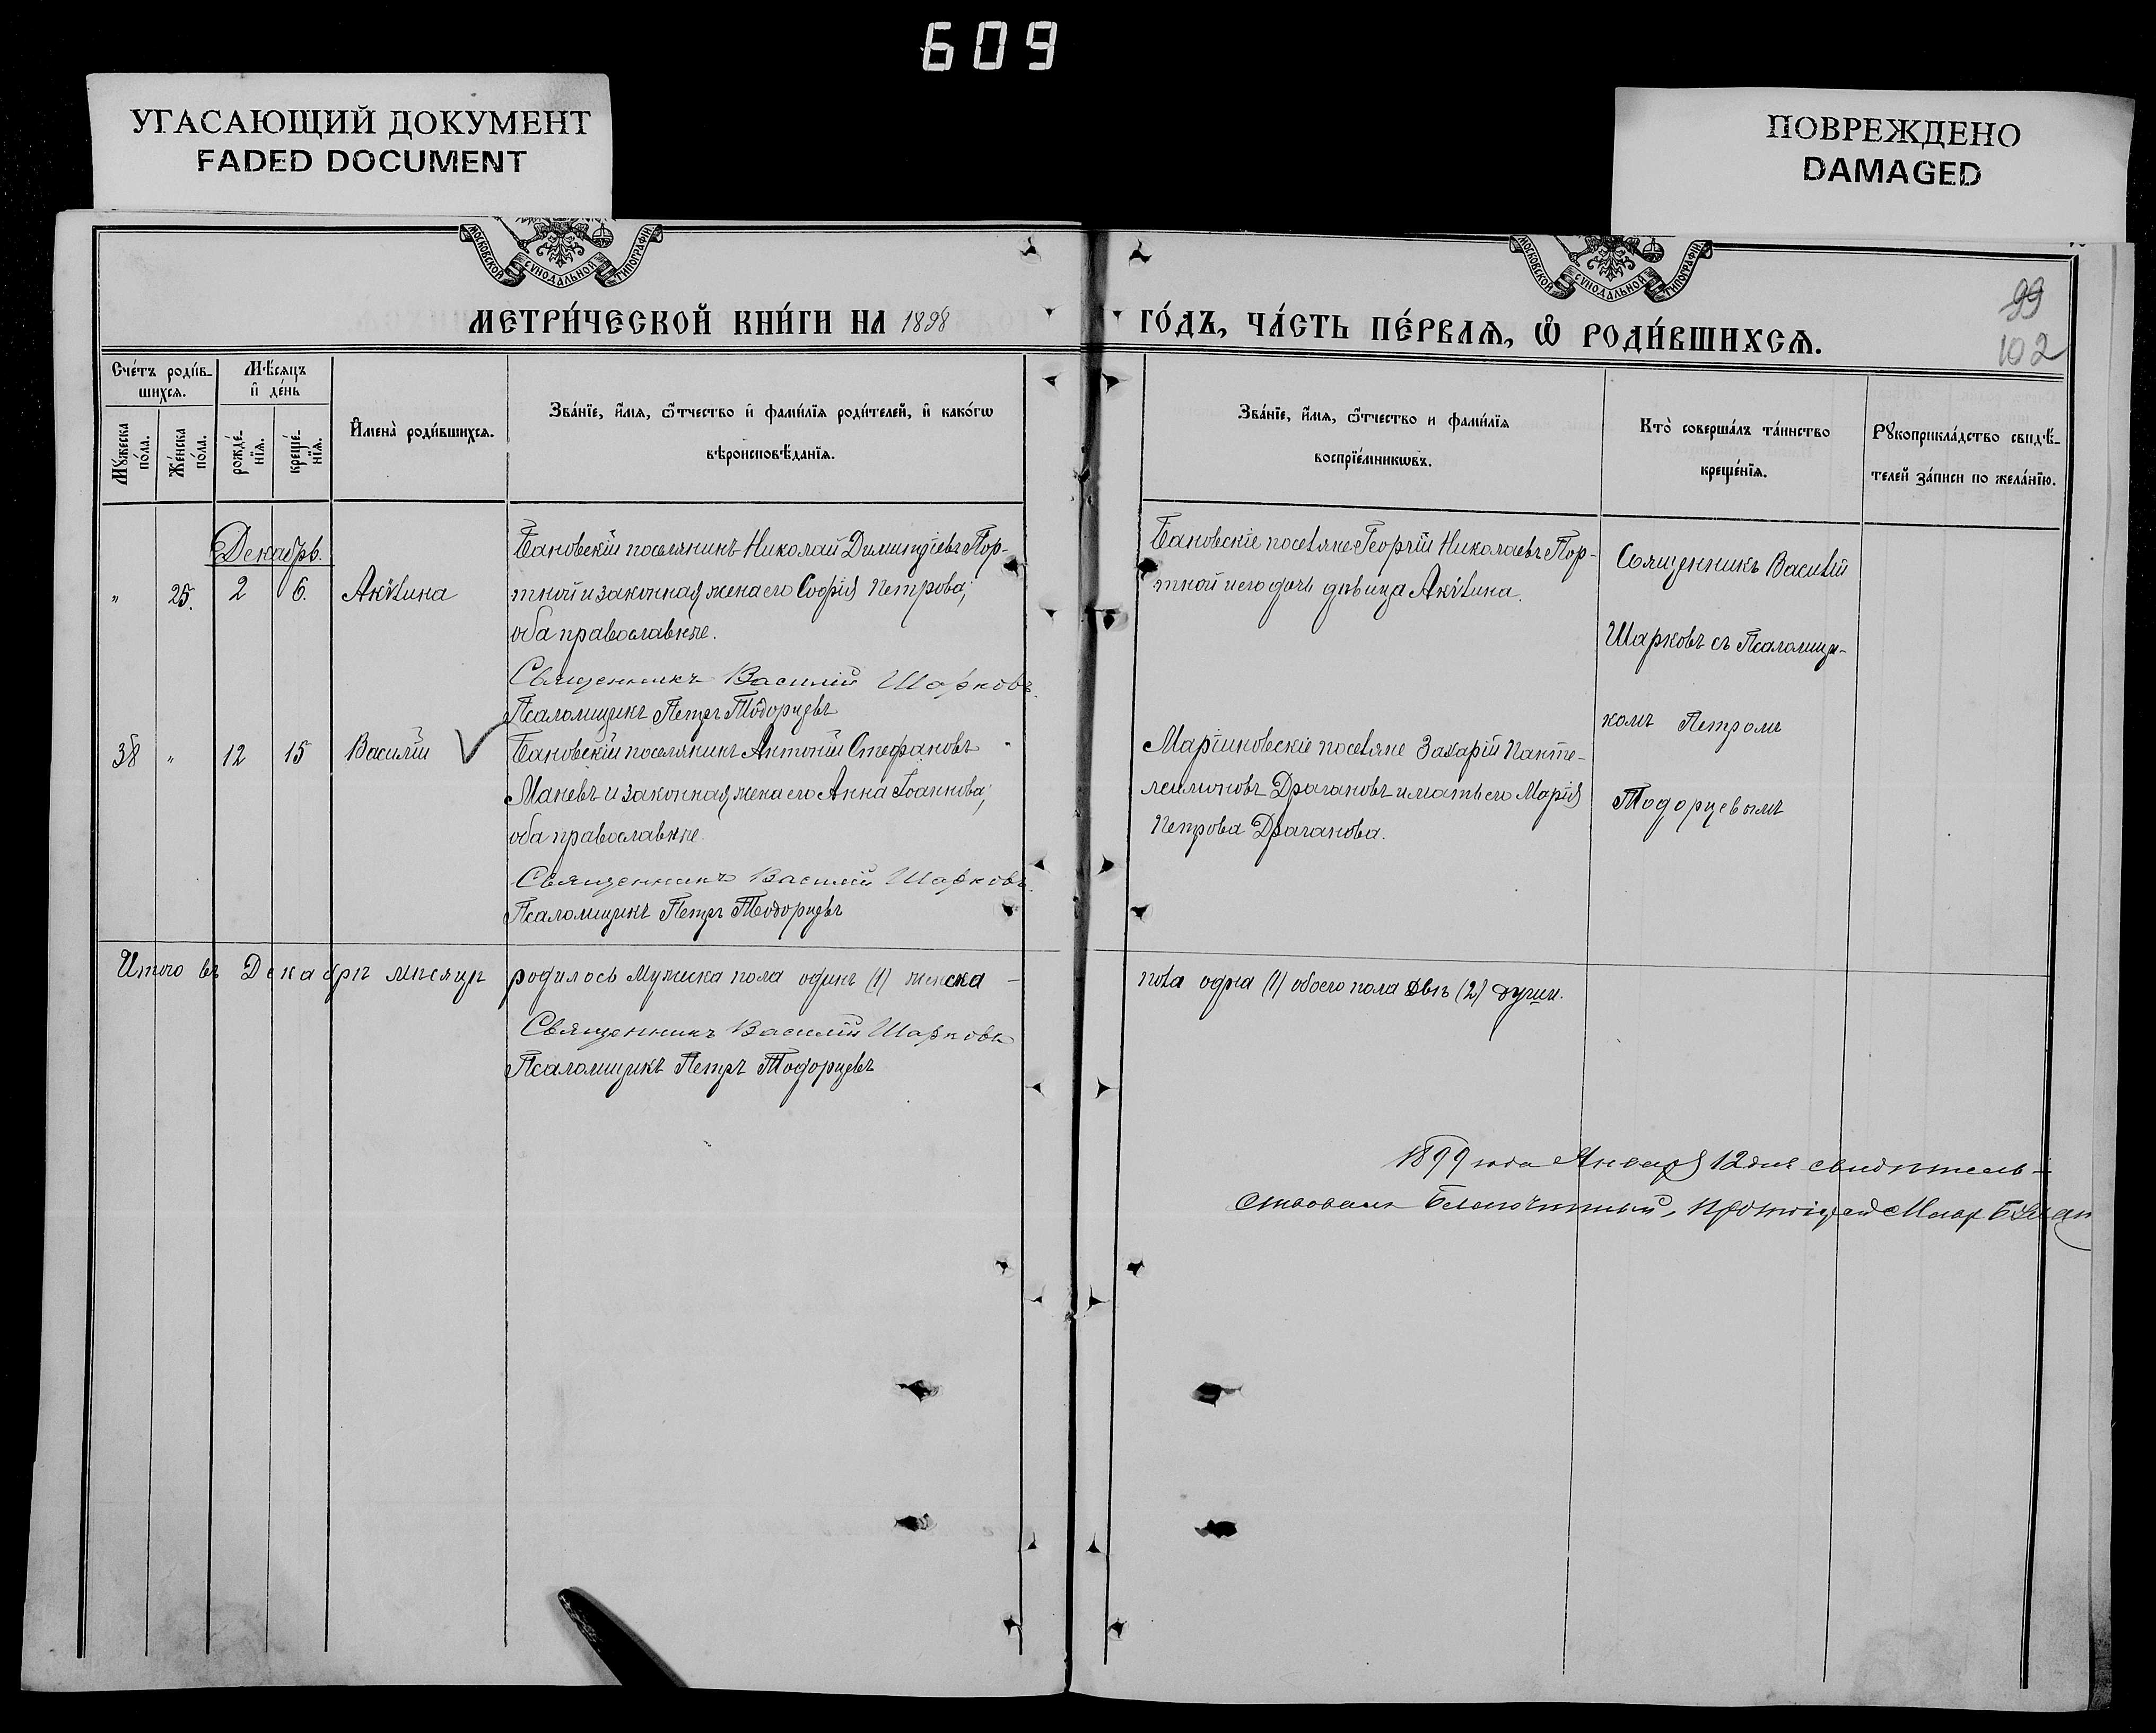 609
УГАСАЮЩИЙ ДОКУМЕНТ
FADED DOCUMENT
ПОВРЕЖДЕНО
DAMAGED
МОСКОВСКОЙ СѴНОДАЛЬНОЙ ТИПОГРАФІИ
МОСКОВСКОЙ СѴНОДАЛЬНОЙ ТИПОГРАФІИ
99
102
МЕТРИ́ЧЕСКОЙ КНИ́ГИ НА 1898
ГО́ДЪ, ЧА́СТЬ ПЕ́РВАѦ, Ѡ҆ РОДИ́ВШИХСѦ.
Сче́тъ роди́в-
шихсѧ.
Мѣ́сѧцъ
и҆ де́нь
Мꙋ́жеска
по́ла.
Же́нска
по́ла.
рожде́-
нїѧ.
креще́-
нїѧ.
И҆мена̀ роди́вшихсѧ.
Зва́нїе, и҆́мѧ, ѻ҆́тчество и҆ фами́лїѧ роди́телей, и҆ како́гѡ
вѣроисповѣ́данїѧ.
Зва́нїе, и҆́мѧ, ѻ҆́тчество и фами́лїѧ
воспрїе́мникѡвъ.
Кто̀ соверша́лъ та́инство
креще́нїѧ.
Рꙋкоприкла́дство свидѣ́-
телей за́писи по жела́нїю.
Декабрь.
„ 25. 2 6. Акѵлина
Бановскій поселянинъ Николай Димитріевъ Пор-
тной и законная жена его Софія Петрова;
оба православные.
Священникъ Василій Шарковъ.
Псаломщикъ Петръ Тодорцевъ
Бановскіе поселяне Георгій Николаевъ Пор-
тной и его дочь дѣвица Акѵлина.
Священникъ Василій
Шарковъ съ Псаломщи-
комъ Петромъ
Тодорцевымъ
38 „ 12 15 Василій
Бановскій поселянинъ Антоній Стефановъ
Маневъ и законная жена его Анна Іоаннова;
оба православные.
Священникъ Василій Шарковъ.
Псаломщикъ Петръ Тодорцевъ
Маріиновскіе поселяне Захарій Панте-
леимоновъ Драгановъ и мать его Марія
Петрова Драганова.
Итого въ Декабрѣ мѣсяцѣ родилось Мужеска пола одинъ (1) женска –
пола одна (1) обоего пола двѣ (2) души.
Священникъ Василій Шарковъ
Псаломщикъ Петръ Тодорцевъ
1899 года Января 12 дня свидѣтель-
ствовалъ Благочинный, Протоіерей